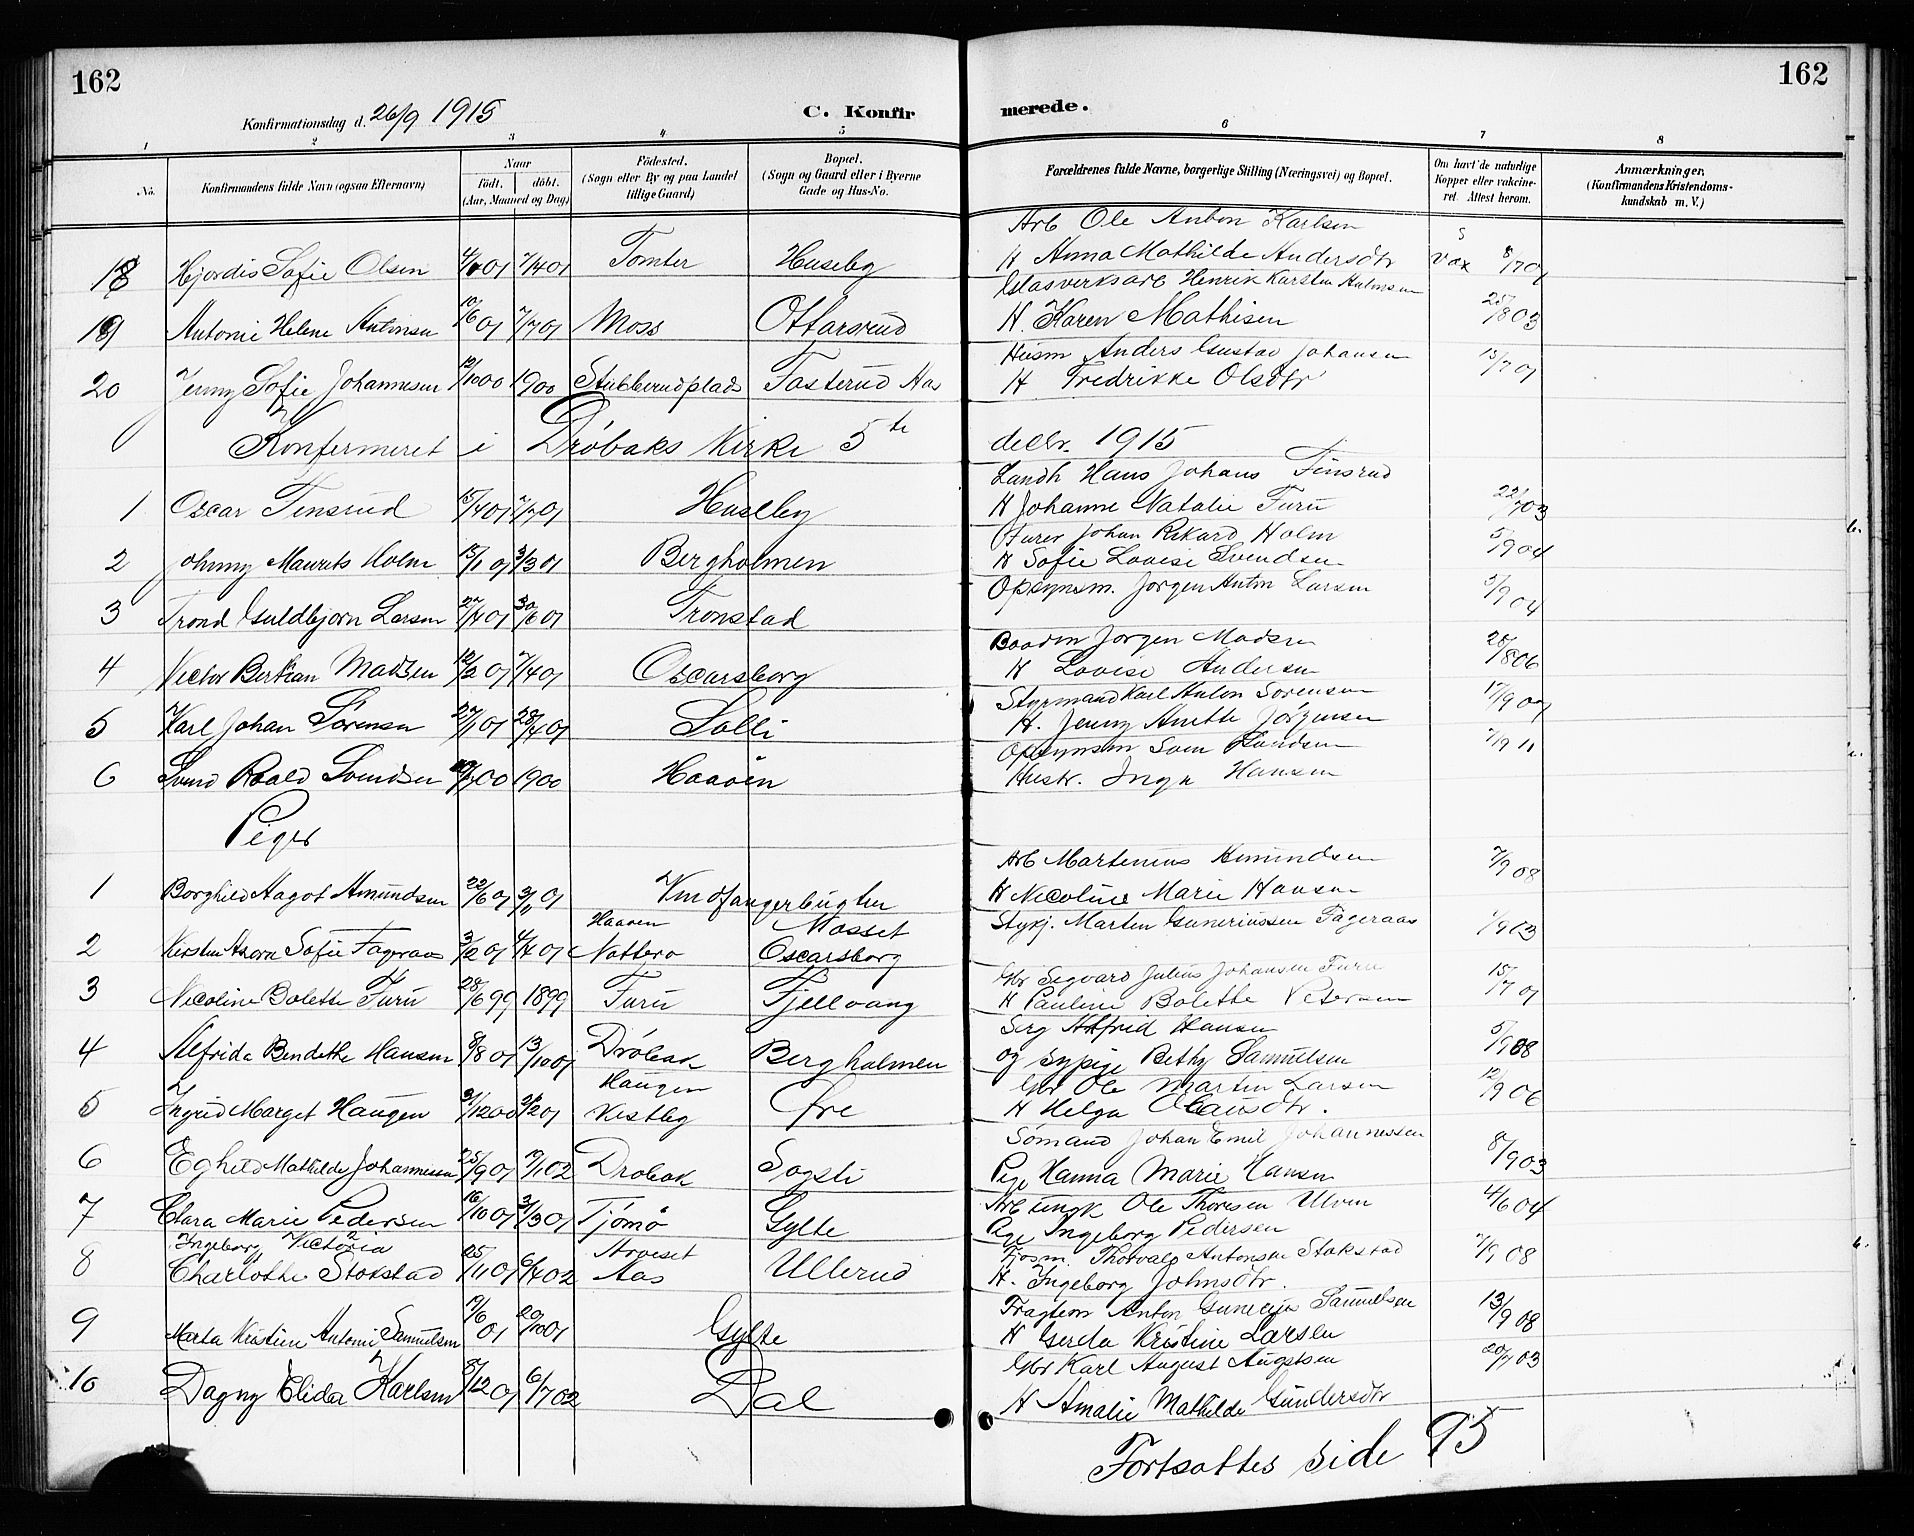 162
162
Konfirmationsdag d. 26/9 1915
C. Konfir
merede.
1 2 3 4 5 6 7 8
No.
Konfirmandens fulde Navn (ogsaa Efternavn)
Naar
födt. döbt.
(Aar, Maaned og Dag)
Födested.
(Sogn eller By og paa Landet
tillige Gaard)
Bopæl.
(Sogn og Gaard eller i Byerne
Gade og Hus-No.
Forældrenes fulde Navne, borgerlige Stilling (Næringsvei) og Bopæl.
Om havt de naturlige
Kopper eller vakcine-
ret. Attest herom.
Anmærkninger,
(Konfirmandens Kristendoms-
kundskab m. V.)
Arb Ole Anton Karlsen
18 Hjordis Sofie Olsen 7/4 01 Tomter Huseby H Anna Mathilde Andersdtr vax 8/7 01
Glasverksarb Henrik Karsten
19 Antonie Helene 10/6 01 7/7 01 Moss Ottarsrud H. Karen Mathisen 25/8 03
Husm Anders Gustav Johansen 13/7 01
20 Jenny Sofie Johannesen 12/10 00 1900 Stubberudplads Fosterud Aas H Fredrikke Olsdtr
Konfermeret i Drøbaks Kirke 5te decbr. 1915
Landh Hans Johans Finsrud
1 Oscar Finsrud 15/4 01 7/7 01 Huseby H Johanne Natalie Furu 22/7 03
Johan Rikard Holm 5/9 04
2 Johnny Maurits Holm 15/1 01 3/3 01 Bergholmen H Sofie Lovise Svendsen
Opsynsm. Jørgen Anton Larsen 5/9 04
3 Trond Guldbjorn Larsen 27/4 01 30/6 01 Tronstad
Baadm Jørgen Madsen 28/8 06
4 Victor Bertran Madsen 12/2 01 7/4 01 Oscarsborg H Lovise Andersen
Styrmand Karl Anton Sørensen 17/9 07
5 Karl Johan Sørensen 27/1 01 28/4 01 Solli H. Jenny Anette Jørgensen
Opsynsm Sven Svendsen 7/9 11
6 Svend Roald Svendsen 00 1900 Haaøen Hustr. Inga Hansen
Piger
Arb Martinius Amundsen 7/9 08
1 Borghild Aagot Amundsen 22/6 01 3/11 01 Vindfangerbugten H Nicoline Marie Hansen
Haaøen Mosset Stykj. Marten Gunerinssen Fageraas 1/9 03
2 Kirsten Sofie Fageraas 3/2 01 4/4 01 Nøtterø Oscarsborg
Gbr Segvard Julius Johansen Furu 15/7 01
3 Nicoline Bolette Furu 28/6 99 1899 Furu Fjellvang H Pauline Bolette Petersen
Serg Alfrid Hansen 5/9 08
4 Alfrida Bendekke Hansen 8/8 01 13/10 01 Drøbak Bergholmen og sypige Bethy Samuelsen
Haugen Gbr Ole Martin Larsen 12/9 06
5 Ingrid Marget Haugen 31/12 00 01 Vestby Øre H Helga Olausdtr.
Sømand Johan Emil Johannessen
6 Eghild Mathilde Johannessen 25/9 01 02 Drøbak Sogsti Pige Hanna Marie Hansen 8/9 03
7 Clara Marie Pedersen 16/10 01 3/3 01 Tjømø Gylte Arb Ole Thoresen Ulven 4/6 04
Pige Ingeborg Pedersen
Ingeborg Victoria Aas Thorvald Antonsen Stokstad 2/9 08
8 Charlotte Stokstad 25/11 01 6/4 02 Ullerud H. Ingeborg Johnsdtr.
Fragtem Anton Samuelsen 13/9 08
9 Marta Kristine Antonie Samuelsen 19/6 01 20/10 01 Gylte H Gerda Kristine Larsen
Gbr Karl August Augstsen 20/7 03
10 Dagny Elida Karlsen 8/12 01 6/7 02 Dal H Amalie Mathilde Gundersdtr
Fortsattes side 95